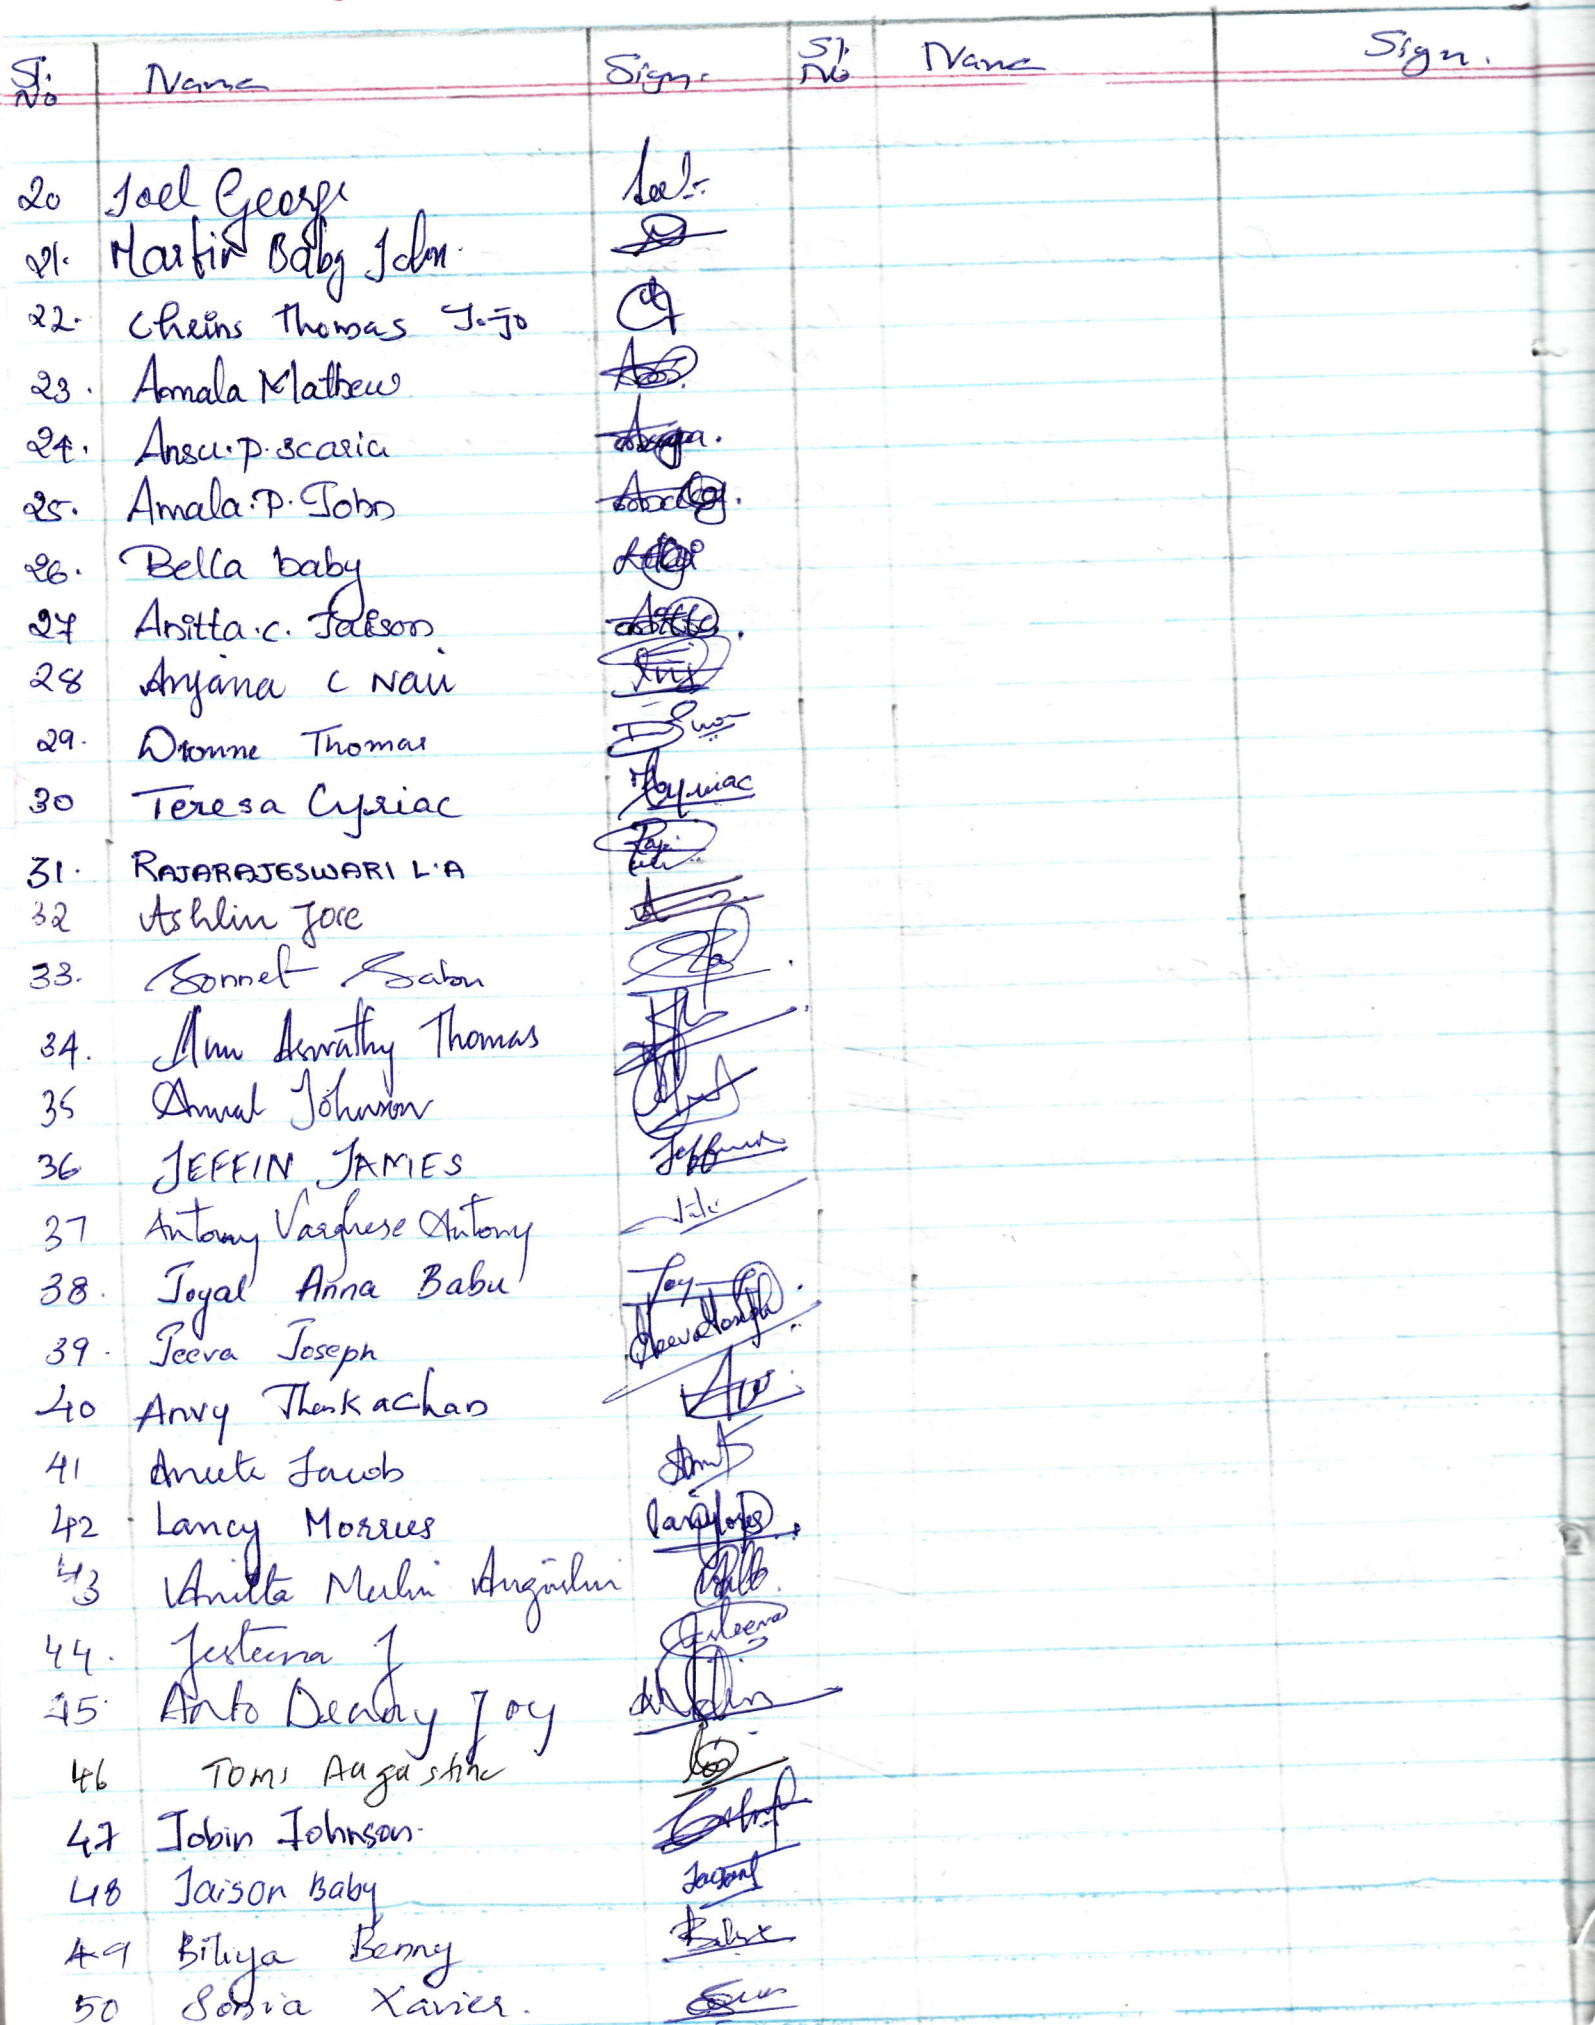 Sl. No Name Sign. Sl. No Name Sign.
20 Joel George Joel
21. Martin Baby John.
22. Chrins Thomas Jojo
23. Anmala Mathew
24. Ansu.P.Scaria
25. Amala.P.John
26. Bella baby
27 Anitta.C. Jaison
28 Anjana C Nair
29. Dionne Thomas
30 Teresa Cyriac TCyriac
31. RAJARAJESWARI L.A
32 Ashlin Jose
33. Sonnet Sabu
34. Ann Aswathy Thomas
35 Amal Johnson
36 JEFFIN JAMES
37 Antony Varghese Antony
38. Joyal Anna Babu
39. Jeeva Joseph Jeeva Joseph
40 Anvy Thankachan
41 Aneeta Jacob
42 Lancy Morries
43 Anitta Merlin Augustin
44. Jesteena J Jesteena
45 Anto Denny Joy
46 Tomi Augustine
47 Jobin Johnson.
48 Jaison Baby Jaison
49 Biliya Benny
50 Sonia Xavier.